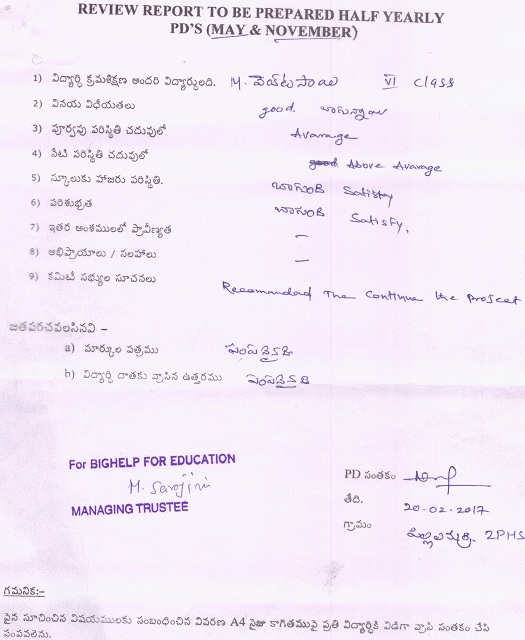 REVIEW REPORT TO BE PREPARED HALF YEARLY
PD'S (MAY & NOVEMBER)
1) విద్యార్థి క్రమశిక్షణ అందరి విద్యార్థులది. M. VI Class
2) వినయ విధేయతలు good.
3) పూర్వపు పరిస్థితి చదువులో Avarage
4) నేటి పరిస్థితి చదువులో good Above Avarage
5) స్కూలుకు హాజరు పరిస్థితి. బాగుంది Satisfy
6) పరిశుభ్రత బాగుంది Satisfy.
7) ఇతర అంశములలో ప్రావీణ్యత –
8) అభిప్రాయాలు / సలహాలు –
9) కమిటీ సభ్యుల సూచనలు Recommended The Continue the Project
జతపరచవలసినవి –
a) మార్కుల పత్రము పంపడైనది
b) విద్యార్థి దాతకు వ్రాసిన ఉత్తరము పంపడైనది
For BIGHELP FOR EDUCATION
M. Sarojini
MANAGING TRUSTEE
PD సంతకం
తేది. 20-02-2017
గ్రామం ZPHS
గమనిక:–
పైన సూచించిన విషయములకు సంబంధించిన వివరణ A4 సైజు కాగితముపై ప్రతి విద్యార్థికి విడిగా వ్రాసి సంతకం చేసి
పంపవలెను.